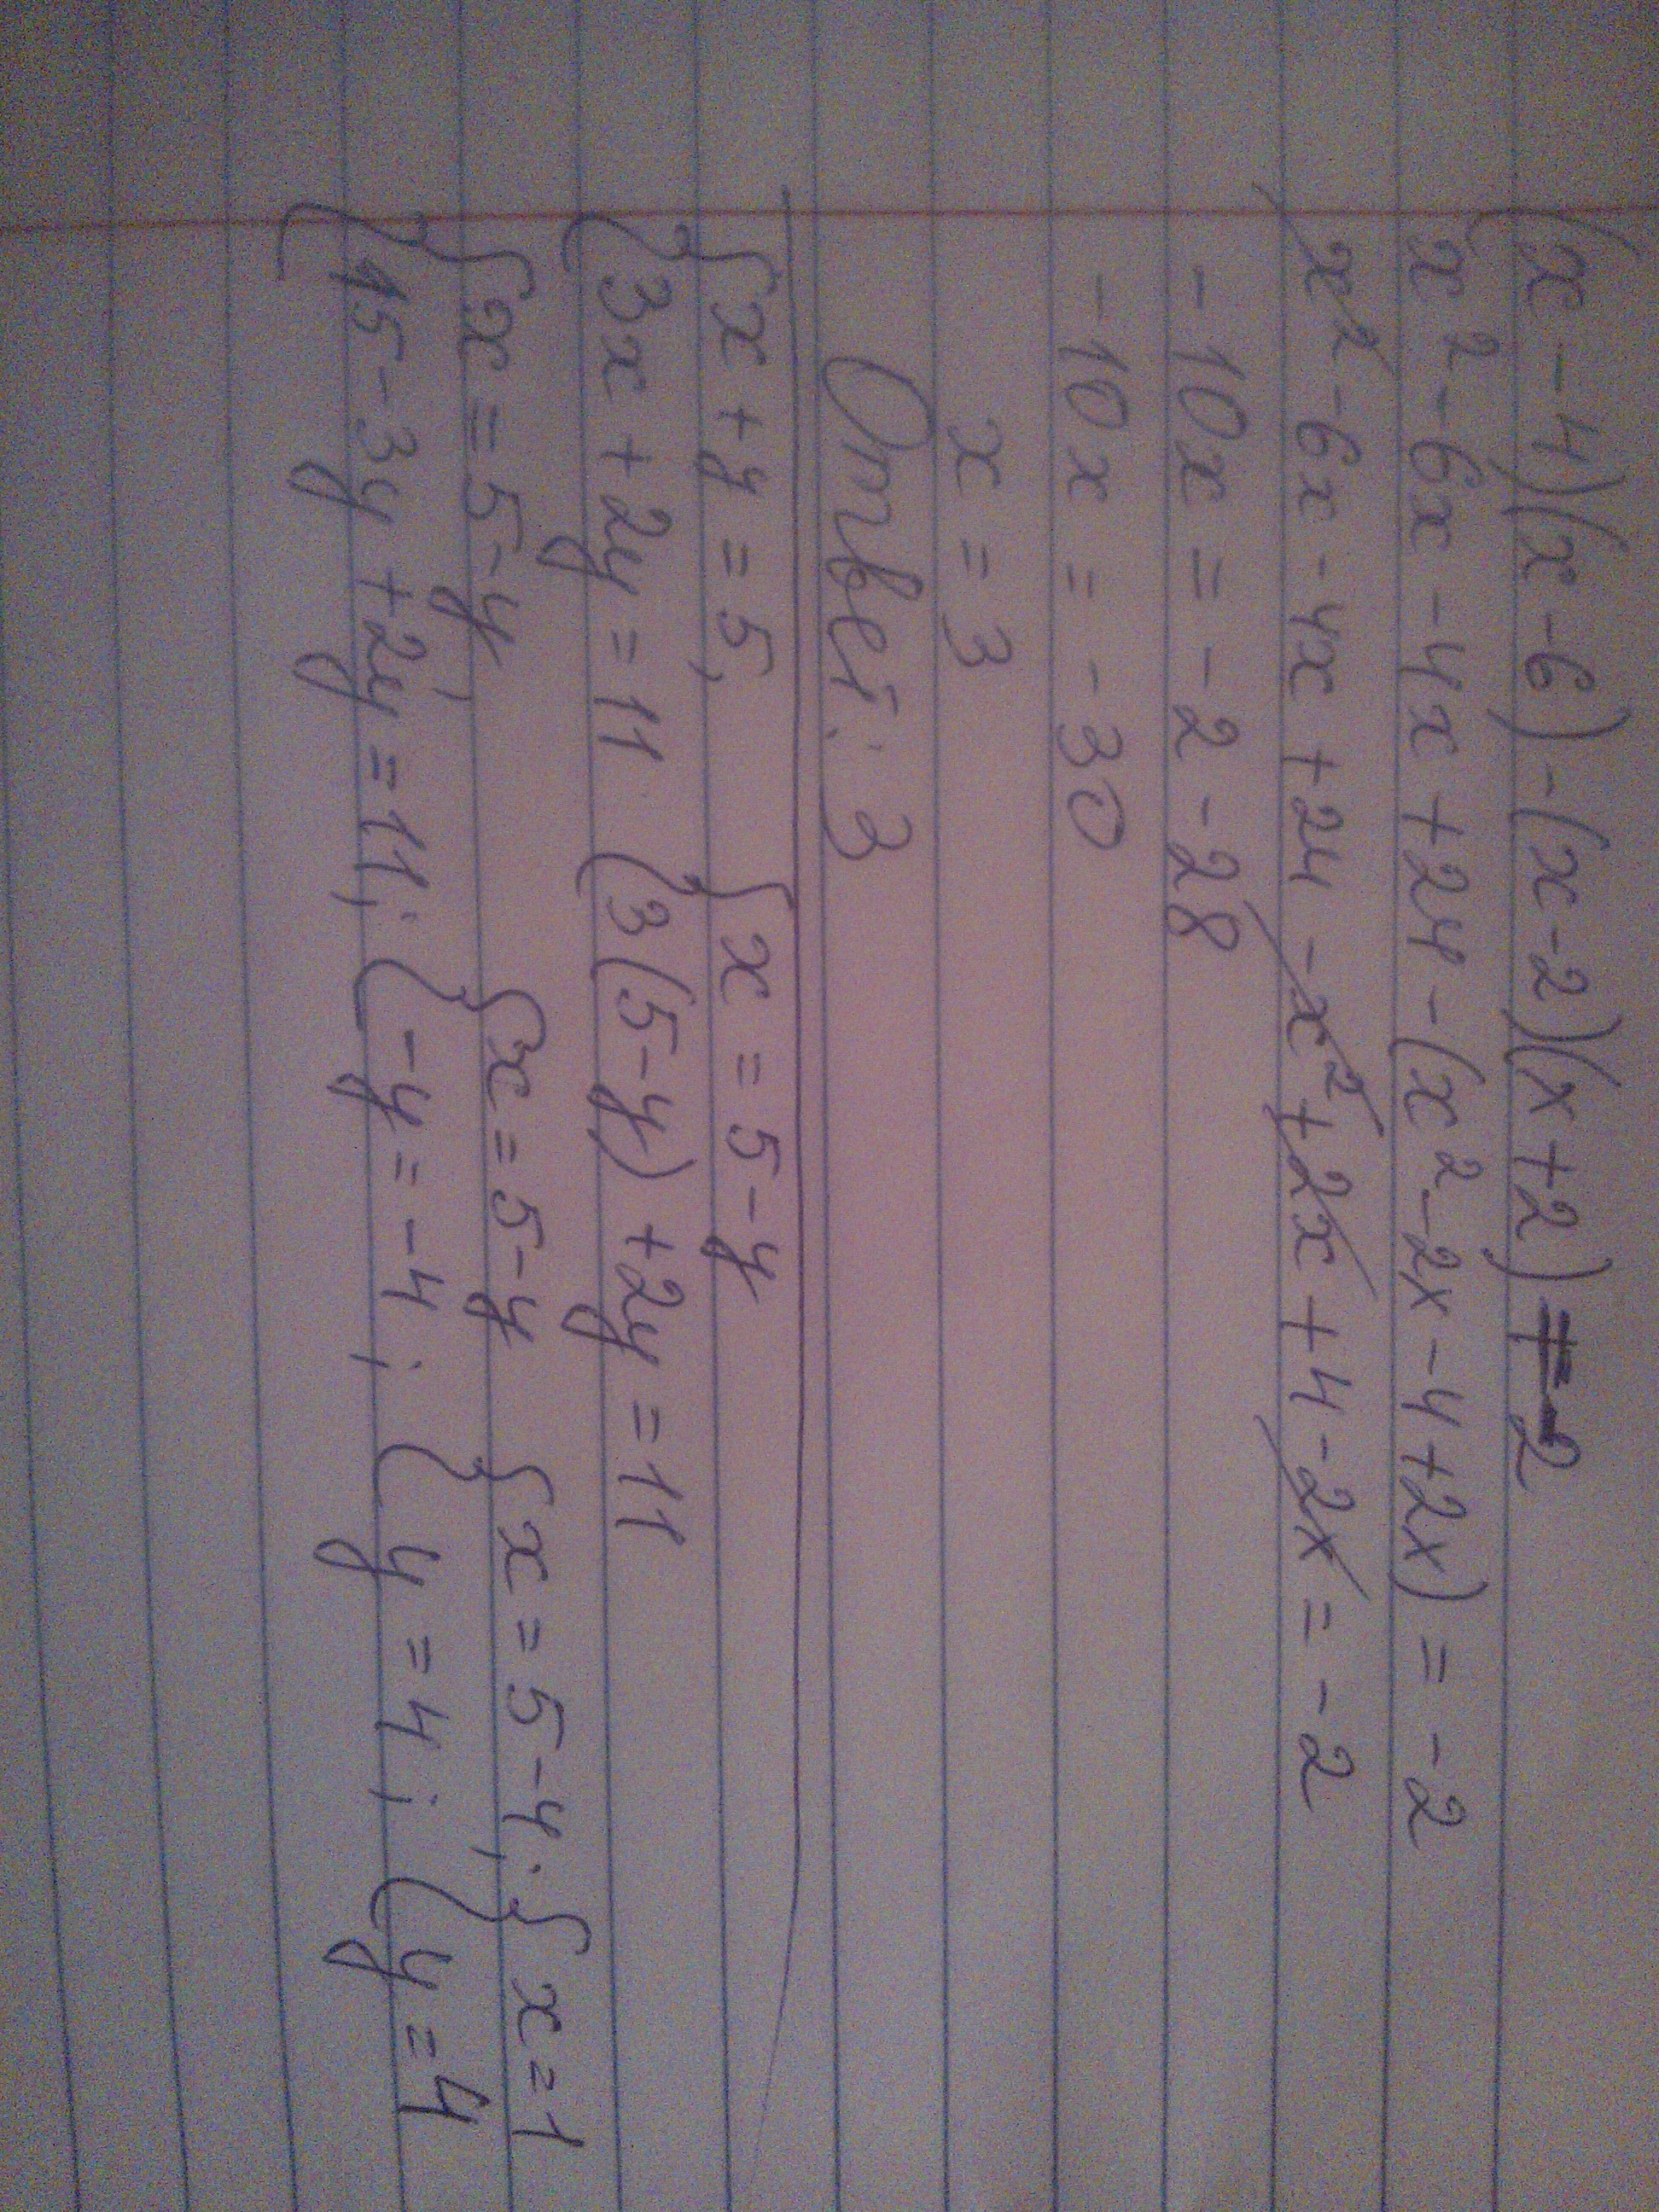 (x-4)(x-6)-(x-2)(x+2)=-2
x²-6x-4x+24-(x²-2x-4+2x)=-2
x²-6x-4x+24-x²+2x+4-2x=-2
-10x=-2-28
-10x=-30
x=3
Ответ: 3
{x+y=5, {x=5-y
{3x+2y=11 {3(5-y)+2y=11
{x=5-y {x=5-y {x=5-4; {x=1
{15-3y+2y=11; {-y=-4; {y=4; {y=4